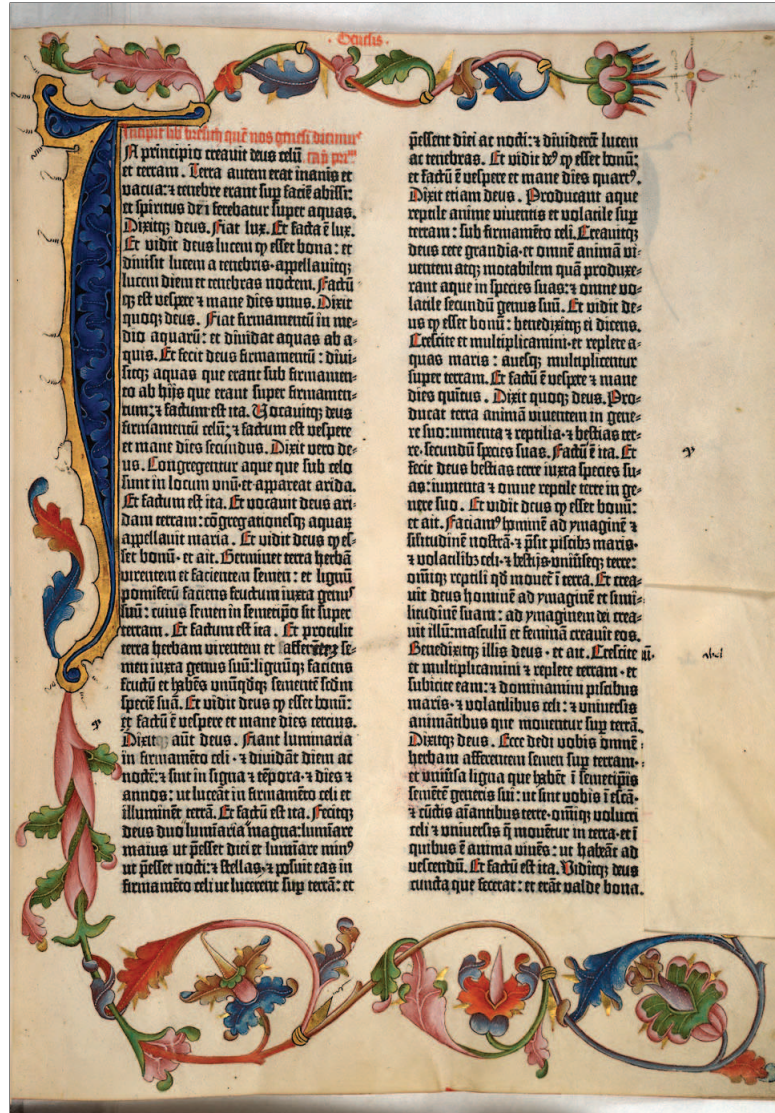 Genesis
Incipit lib̄ bresith quē nos genesim dicimꝰ
IN principio creavit deus celū cap̄ prīmū
et terram. Terra autem erat inanis et
vacua: ⁊ tenebre erant sup̄ faciē abissi:
et spiritus dei ferebatur super aquas.
Dixitq; deus. Fiat lux. Et facta ē lux.
Et vidit deus lucem ꝙ esset bona: et
divisit lucem a tenebris · appellavitq;
lucem diem et tenebras noctem. Factū
q; est vespere ⁊ mane dies unus. Dixit
quoq; deus. Fiat firmamentū in me-
dio aquarū: et dividat aquas ab a-
quis. Et fecit deus firmamentū: divi-
sitq; aquas que erant sub firmamen-
to ab hijs que erant super firmamen-
tum: ⁊ factum est ita. Vocavitq; deus
firmamentū celū: ⁊ factum est vespere
et mane dies secundus. Dixit vero de-
us. Congregentur aque que sub celo
sunt in locum unū · et appareat arida.
Et factum est ita. Et vocavit deus ari-
dam terram: cōgregationesq; aquaꝝ
appellavit maria. Et vidit deus ꝙ es-
set bonū · et ait. Germinet terra herbā
virentem et facientem semen: et lignū
pomiferū faciens fructum iuxta genuˢ
suū: cuius semen in semetipso sit super
terram. Et factum est ita. Et protulit
terra herbam virentem et facientem se-
men iuxta genus suū: lignūq; faciens
fructū et habēs unūqdq; sementē scdm
speciē suā. Et vidit deus ꝙ esset bonū:
et factū ē vespere et mane dies tercius.
Dixitq; aūt deus. Fiant luminaria
in firmamēto celi · ⁊ dividāt diem ac
noctē: ⁊ sint in signa ⁊ tēpora · ⁊ dies ⁊
annos: ut luceāt in firmamēto celi et
illuminēt terrā. Et factū est ita. Fecitq;
deus duo lumīaria magna: lumīare
maius ut p̄esset diei et lumīare minꝰ
ut p̄esset nocti: ⁊ stellas · ⁊ posuit eas in
firmamēto celi ut lucerent sup̄ terrā: et
p̄essent diei ac nocti: ⁊ dividerēt lucem
ac tenebras. Et vidit deꝰ ꝙ esset bonū:
et factū ē vespere et mane dies quartꝰ.
Dixit etiam deus. Producant aque
reptile anime viventis et volatile sup̄
terram: sub firmamēto celi. Creavitq;
deus cete grandia · et omnē animā vi-
ventem atq; motabilem quā produxe-
rant aque in species suas: ⁊ omne vo-
latile secundū genus suū. Et vidit de-
us ꝙ esset bonū: benedixitq; ei dicens.
Crescite et multiplicamini · et replete a-
quas maris: avesq; multiplicentur
super terram. Et factū ē vespere ⁊ mane
dies quītus. Dixit quoq; deus. Pro-
ducat terra animā viventem in gene-
re suo: iumenta ⁊ reptilia · ⁊ bestias ter-
re · secundū species suas. Factū ē ita. Et
fecit deus bestias terre iuxta species su-
as: iumenta ⁊ omne reptile terre in ge-
nere suo. Et vidit deus ꝙ esset bonū:
et ait. Faciamꝰ hominē ad ymaginē ⁊
silitudinē nostrā · ⁊ p̄sit piscibꝰ maris ·
⁊ volatilibꝰ celi · ⁊ bestijs · univ̄seq; terre:
omīq; reptili qd movet̄ ī terra. Et crea-
vit deus hominē ad ymaginē et simi-
litudinē suam: ad ymaginem dei crea-
vit illū: masculū et feminā creavit eos.
Benedixitq; illis deus · et ait. Crescite
et multiplicamini ⁊ replete terram · et
subicite eam: ⁊ dominamini piscibus
maris · ⁊ volatilibus celi: ⁊ universis
animātibus que moventur sup̄ terrā.
Dixitq; deus. Ecce dedi vobis omnē
herbam afferentem semen sup̄ terram ·
et univ̄sa ligna que habēt ī semetip̄is
semētē generis sui: ut sint vobis ī escā ·
⁊ cūctis aīantibus terre · omīq; volucri
celi ⁊ universis q̄ movētur in terra · et ī
quibus ē anima vivēs: ut habeāt ad
vescendū. Et factū est ita. Viditq; deus
cuncta que fecerat: et erāt valde bona.